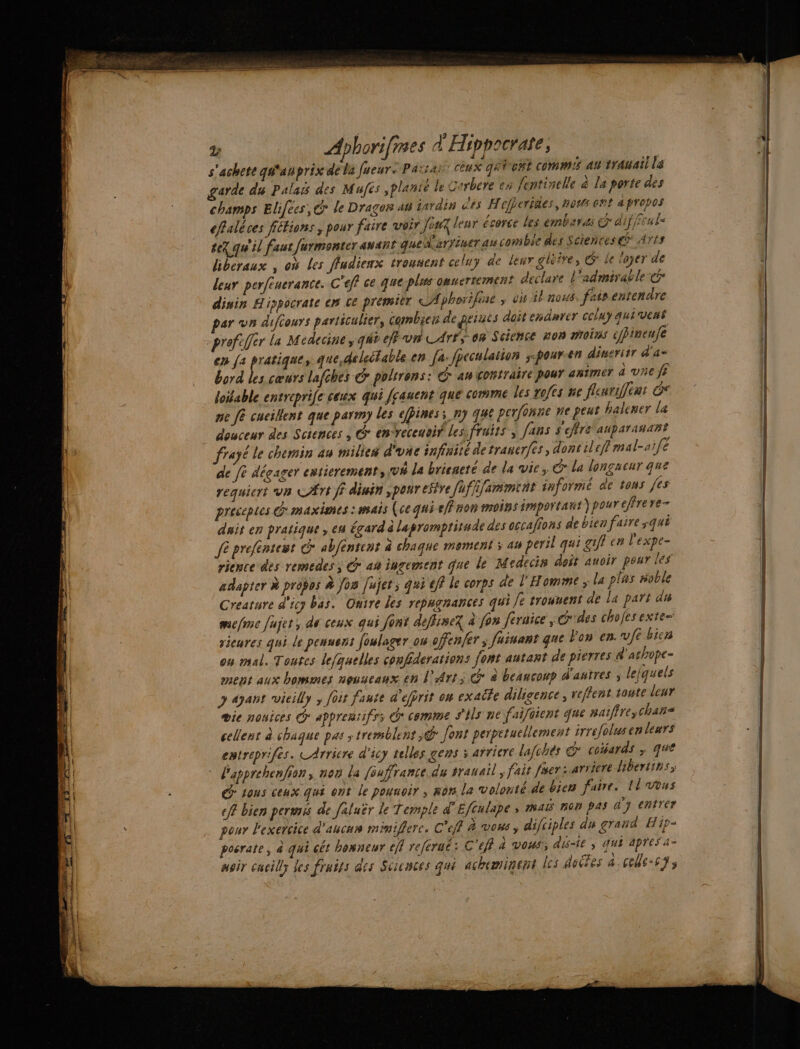 2 Aphorismes d'Hippocrate,
s'achete qu'au prix de la sueur. Partant ceux qui ont commis au trauail la
garde du Palais des Muses, planté le Cerbere en sentinelle à la porte des
champs Elisées, & le Dragon au iardin des Hesperides, nous ont à propos
estalé ces fictions, pour faire voir souz leur écorce les embaras & difficul-
tez qu'il faut surmonter auant que d'arriuer au comble des Sciences & Arts
liberaux, où les studieux trouuent celuy de leur gloire, & le loyer de
leur perseuerance. C'est ce que plus ouuertement declare l'admirable &
diuin Hippocrate en ce premier Aphorisme, où il nous fait entendre
par vn discours particulier, combien de peines doit endurer celuy qui veut
professer la Medecine, qui est vn Art, ou Science non moins espineuse
en sa pratique, que delectable en sa speculation, pour en diuertir d'a-
bord les cœurs lasches & poltrons: & au contraire pour animer à vne si
loüable entreprise ceux qui sçauent que comme les roses ne fleurissent &
ne se cueillent que parmy les espines, ny que personne ne peut halener la
douceur des Sciences, & en receuoir les fruits, sans s'estre auparauant
frayé le chemin au milieu d'vne infinité de trauerses, dont il est mal-aisé
de se dégager entierement, vû la brieueté de la vie, & la longueur que
requiert vn Art si diuin, pour estre suffisamment informé de tous ses
preceptes & maximes: mais (ce qui est non moins important) pour estre re-
duit en pratique, eu égard à la promptitude des occasions de bien faire, qui
se presentent & absentent à chaque moment; au peril qui gist en l'expe-
rience des remedes, & au iugement que le Medecin doit auoir pour les
adapter à propos à son sujet, qui est le corps de l'Homme, la plus noble
Creature d'icy bas. Outre les repugnances qui se trouuent de la part du
mesme sujet, de ceux qui sont destinez à son seruice, & des choses exte-
rieures qui le peuuent soulager ou offenser, suiuant que l'on en vse bien
ou mal. Toutes lesquelles considerations sont autant de pierres d'achope-
ment aux hommes nouueaux en l'Art, & à beaucoup d'autres, lesquels
y ayant vieilly, soit faute d'esprit ou exacte diligence, restent toute leur
vie nouices & apprentifs, & comme s'ils ne faisoient que naistre, chan-
cellent à chaque pas, tremblent, & sont perpetuellement irresolus en leurs
entreprises. Arriere d'icy telles gens; arriere laschés & coüards, que
l'apprehension, non la souffrance du trauail, fait suer: arriere libertins,
& tous ceux qui ont le pouuoir, non la volonté de bien faire. Il vous
est bien permis de salüer le Temple d'Esculape, mais non pas d'y entrer
pour l'exercice d'aucun ministere. C'est à vous, disciples du grand Hip-
pocrate, à qui cét honneur est reserué: C'est à vous, dis-ie, qui apres a-
uoir cueilly les fruits des Sciences qui acheminent les doctes à celle-cy,